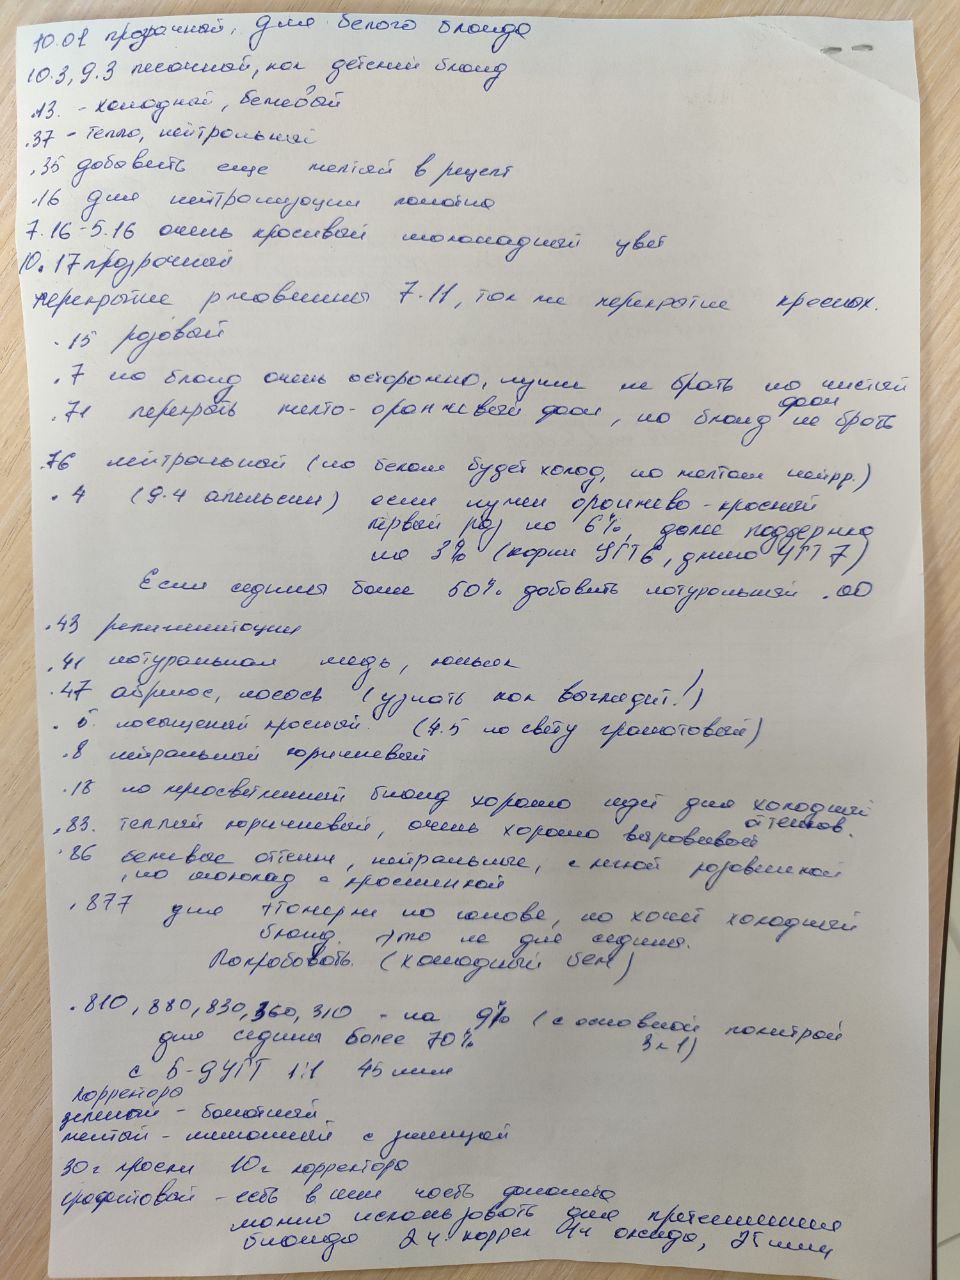 10.01 прозрачный, для белого блонда
10.3, 9.3 песочный, как детский блонд
.13. - холодный, бежевый
.37 - тепло, нейтральный
.35 добавить еще желтый в рецепт
.16 для нейтрализации
7.16-5.16 очень красивый шоколадный цвет
10.17 прозрачный
перекрытие ржавчины 7.11, так же перекрытие красных.
.15 розовый
.7 на блонд очень осторожно, лучше не брать на чистый
фон
.71 перекрыть желто-оранжевый фон, на блонд не брать
.76 нейтральный (на белом будет холод, на желтом нейтр.)
.4 (9.4 апельсин) если нужен оранжево-красный
первый раз на 6%, далее поддержка
на 3% (корни УГТ6, длина УГТ7)
Если седины более 50% добавить натуральный .00
.43 репигментация
.41 натуральная медь, коньяк
.47 абрикос, лосось (узнать как выглядит!)
.5 насыщеный красный. (4.5 по свету гранатовый)
.8 нейтральный коричневый
.18 на пересветленный блонд хорошо идет для холодных
оттенков.
.83. теплый коричневый, очень хорошо
.86 бежевые оттенки, нейтральные, с розовинкой
, на шоколад с краснинкой
.877 для на хочет холодный
блонд. это не для седины.
Попробовать. (холодный беж)
.810, 880, 830, 360, 310 - на 9% (с основной палитрой
для седины более 70% 3 к 1)
с 5-9 УГТ 1:1 45 мин
корректора
зеленый - болотный
желтый - лимонный с
30 г краски 10 г корректора
графитовый - есть в нем часть
можно использовать для притемнения
блонда 2 ч. коррек 4ч оксида, 25 мин